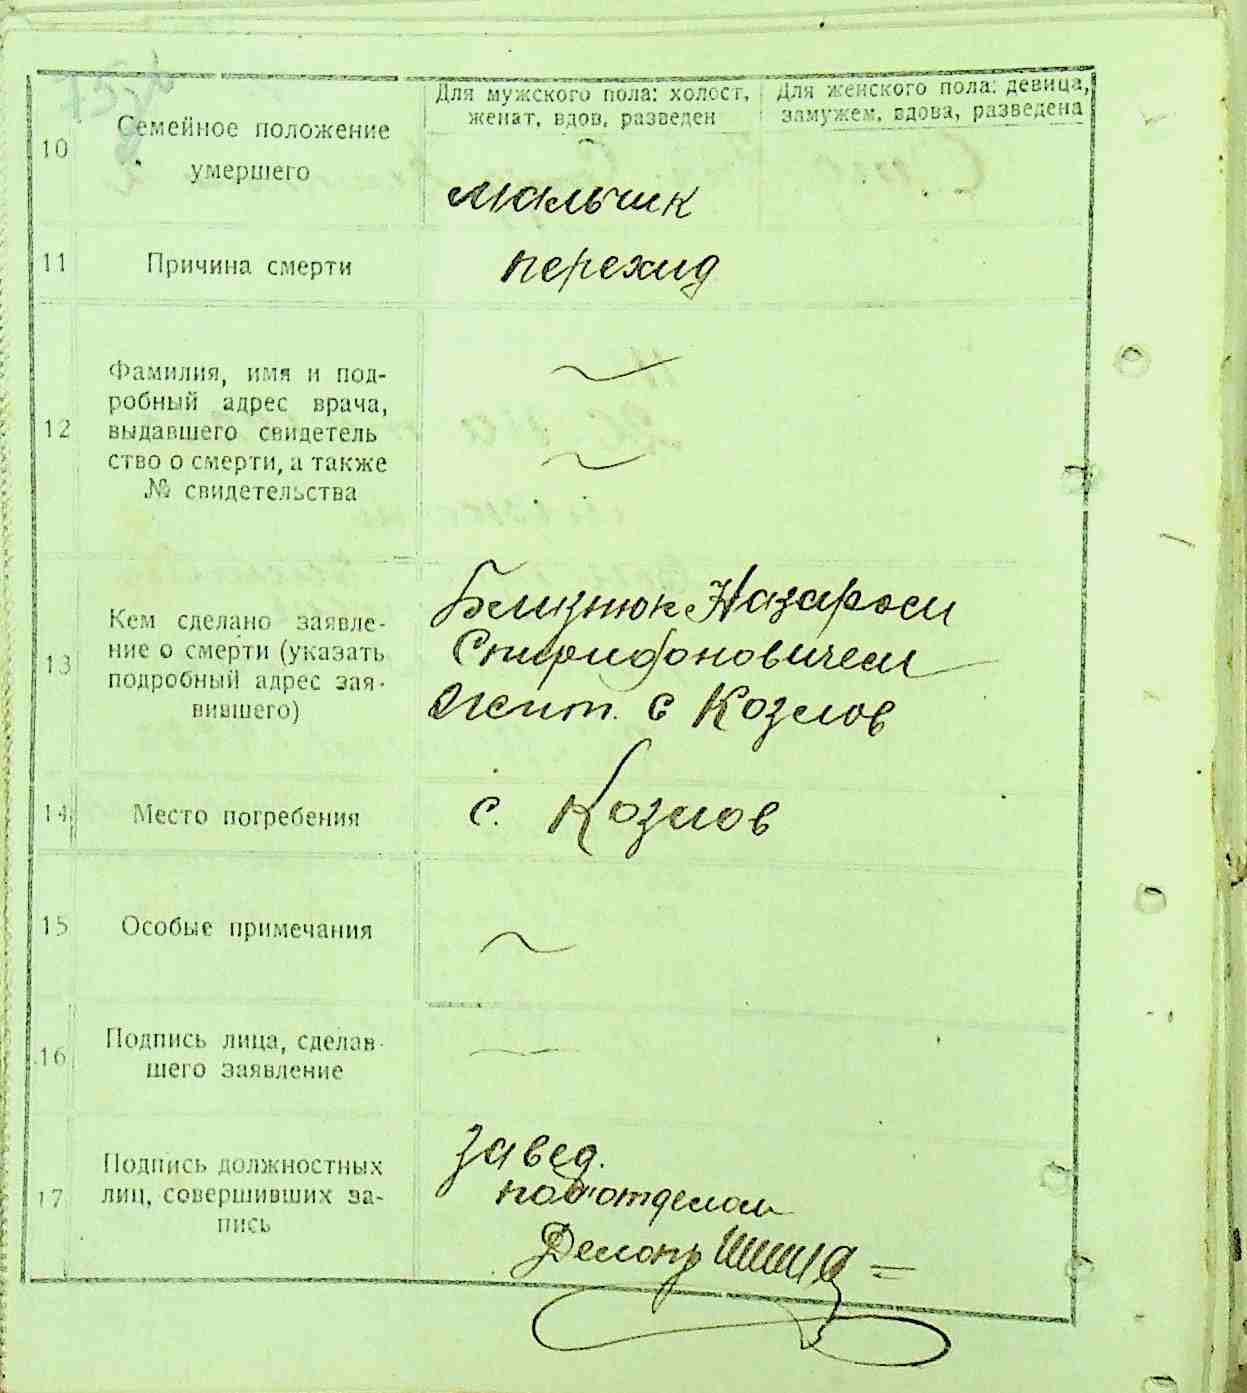 Для мужского пола: холост,
женат, вдов, разведен
Для женского пола: девица,
замужем, вдова, разведена
10
Семейное положение
умершего
мальчик
11
Причина смерти
перехид
12
Фамилия, имя и под-
робный адрес врача,
выдавшего свидетель
ство о смерти, а также
№ свидетельства
13
Кем сделано заявле-
ние о смерти (указать
подробный адрес зая-
вившего)
Близнюк Назаром
Спиридоновичем
жит. с Козлов
14
Место погребения
с. Козлов
15
Особые примечания
16
Подпись лица, сделав-
шего заявление
17
Подпись должностных
лиц, совершивших за-
пись
Завед.
подотделом
Делопр